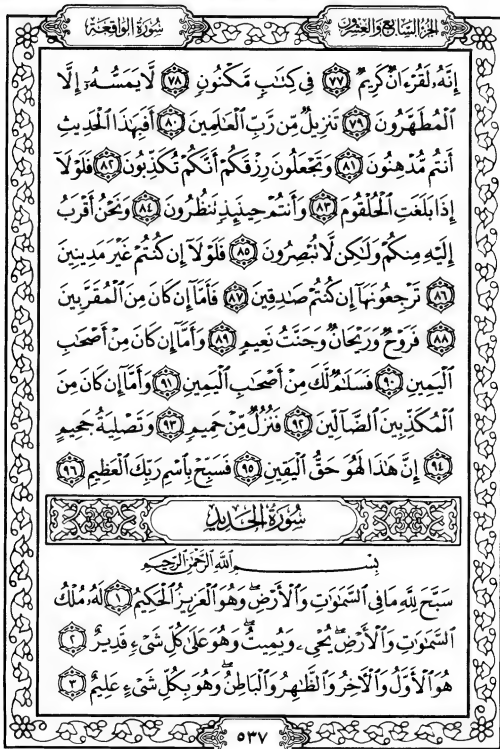 سُورَةُ الوَاقِعَة
الجُزْءُ السَّابِعُ وَالعِشْرُونَ
إِنَّهُۥ لَقُرْءَانٌ كَرِيمٌ ٧٧ فِى كِتَٰبٍ مَّكْنُونٍ ٧٨ لَّا يَمَسُّهُۥٓ إِلَّا
ٱلْمُطَهَّرُونَ ٧٩ تَنزِيلٌ مِّن رَّبِّ ٱلْعَٰلَمِينَ ٨٠ أَفَبِهَٰذَا ٱلْحَدِيثِ
أَنتُم مُّدْهِنُونَ ٨١ وَتَجْعَلُونَ رِزْقَكُمْ أَنَّكُمْ تُكَذِّبُونَ ٨٢ فَلَوْلَآ
إِذَا بَلَغَتِ ٱلْحُلْقُومَ ٨٣ وَأَنتُمْ حِينَئِذٍ تَنظُرُونَ ٨٤ وَنَحْنُ أَقْرَبُ
إِلَيْهِ مِنكُمْ وَلَٰكِن لَّا تُبْصِرُونَ ٨٥ فَلَوْلَآ إِن كُنتُمْ غَيْرَ مَدِينِينَ
٨٦ تَرْجِعُونَهَآ إِن كُنتُمْ صَٰدِقِينَ ٨٧ فَأَمَّآ إِن كَانَ مِنَ ٱلْمُقَرَّبِينَ
٨٨ فَرَوْحٌ وَرَيْحَانٌ وَجَنَّتُ نَعِيمٍ ٨٩ وَأَمَّآ إِن كَانَ مِنْ أَصْحَٰبِ
ٱلْيَمِينِ ٩٠ فَسَلَٰمٌ لَّكَ مِنْ أَصْحَٰبِ ٱلْيَمِينِ ٩١ وَأَمَّآ إِن كَانَ مِنَ
ٱلْمُكَذِّبِينَ ٱلضَّآلِّينَ ٩٢ فَنُزُلٌ مِّنْ حَمِيمٍ ٩٣ وَتَصْلِيَةُ جَحِيمٍ
٩٤ إِنَّ هَٰذَا لَهُوَ حَقُّ ٱلْيَقِينِ ٩٥ فَسَبِّحْ بِٱسْمِ رَبِّكَ ٱلْعَظِيمِ ٩٦
سُورَةُ الحَدِيدِ
بِسْمِ ٱللَّهِ ٱلرَّحْمَٰنِ ٱلرَّحِيمِ
سَبَّحَ لِلَّهِ مَا فِى ٱلسَّمَٰوَٰتِ وَٱلْأَرْضِ ۖ وَهُوَ ٱلْعَزِيزُ ٱلْحَكِيمُ ١ لَهُۥ مُلْكُ
ٱلسَّمَٰوَٰتِ وَٱلْأَرْضِ ۖ يُحْىِۦ وَيُمِيتُ ۖ وَهُوَ عَلَىٰ كُلِّ شَىْءٍ قَدِيرٌ ٢
هُوَ ٱلْأَوَّلُ وَٱلْءَاخِرُ وَٱلظَّٰهِرُ وَٱلْبَاطِنُ ۖ وَهُوَ بِكُلِّ شَىْءٍ عَلِيمٌ ٣
٥٣٧